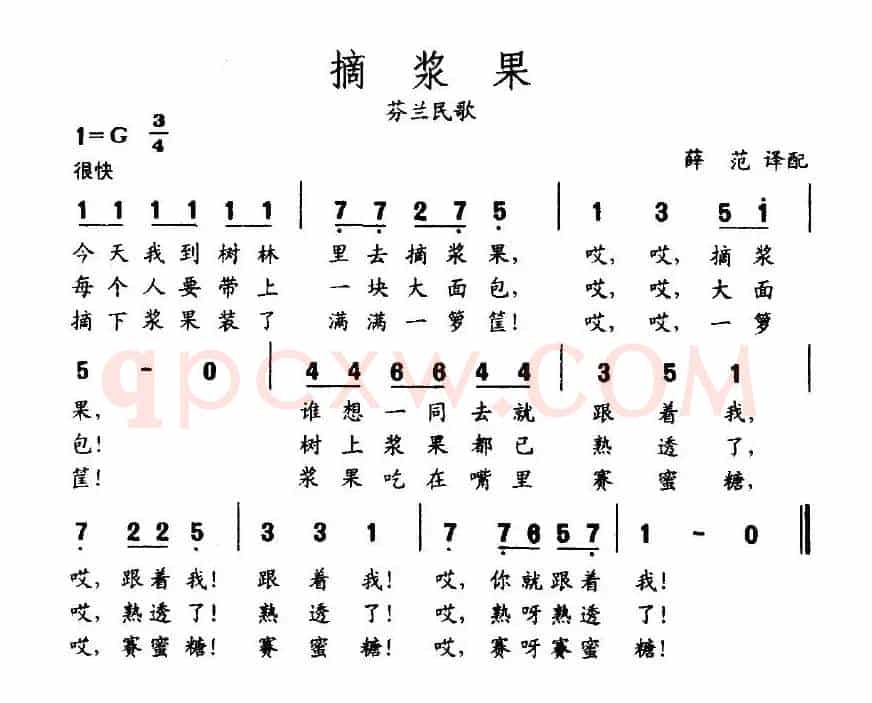 摘 浆 果
芬兰民歌
1=G 3/4
很快
薛 范 译配
1 1 1 1 1 1 | 7 7 2 7 5 | 1 3 5 i |
今天我到树林 里去摘浆果, 哎, 哎, 摘浆
每个人要带上 一块大面包, 哎, 哎, 大面
摘下浆果装了 满满一箩筐! 哎, 哎, 一箩
5 - 0 | 4 4 6 6 4 4 | 3 5 1 |
果, 谁想一同去就 跟着我,
包! 树上浆果都已 熟透了,
筐! 浆果吃在嘴里 赛蜜糖,
qpcxw.COM
7 2 2 5 | 3 3 1 | 7 7 6 5 7 | 1 - 0 ‖
哎, 跟着我! 跟着我! 哎, 你就跟着 我!
哎, 熟透了! 熟透了! 哎, 熟呀熟透 了!
哎, 赛蜜糖! 赛蜜糖! 哎, 赛呀赛蜜 糖!